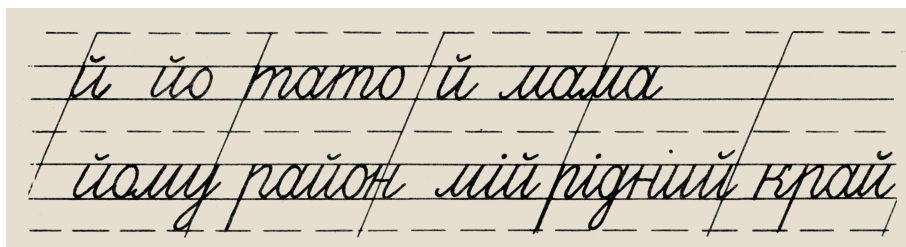 й йо тато й мама
йому район мій рідний край